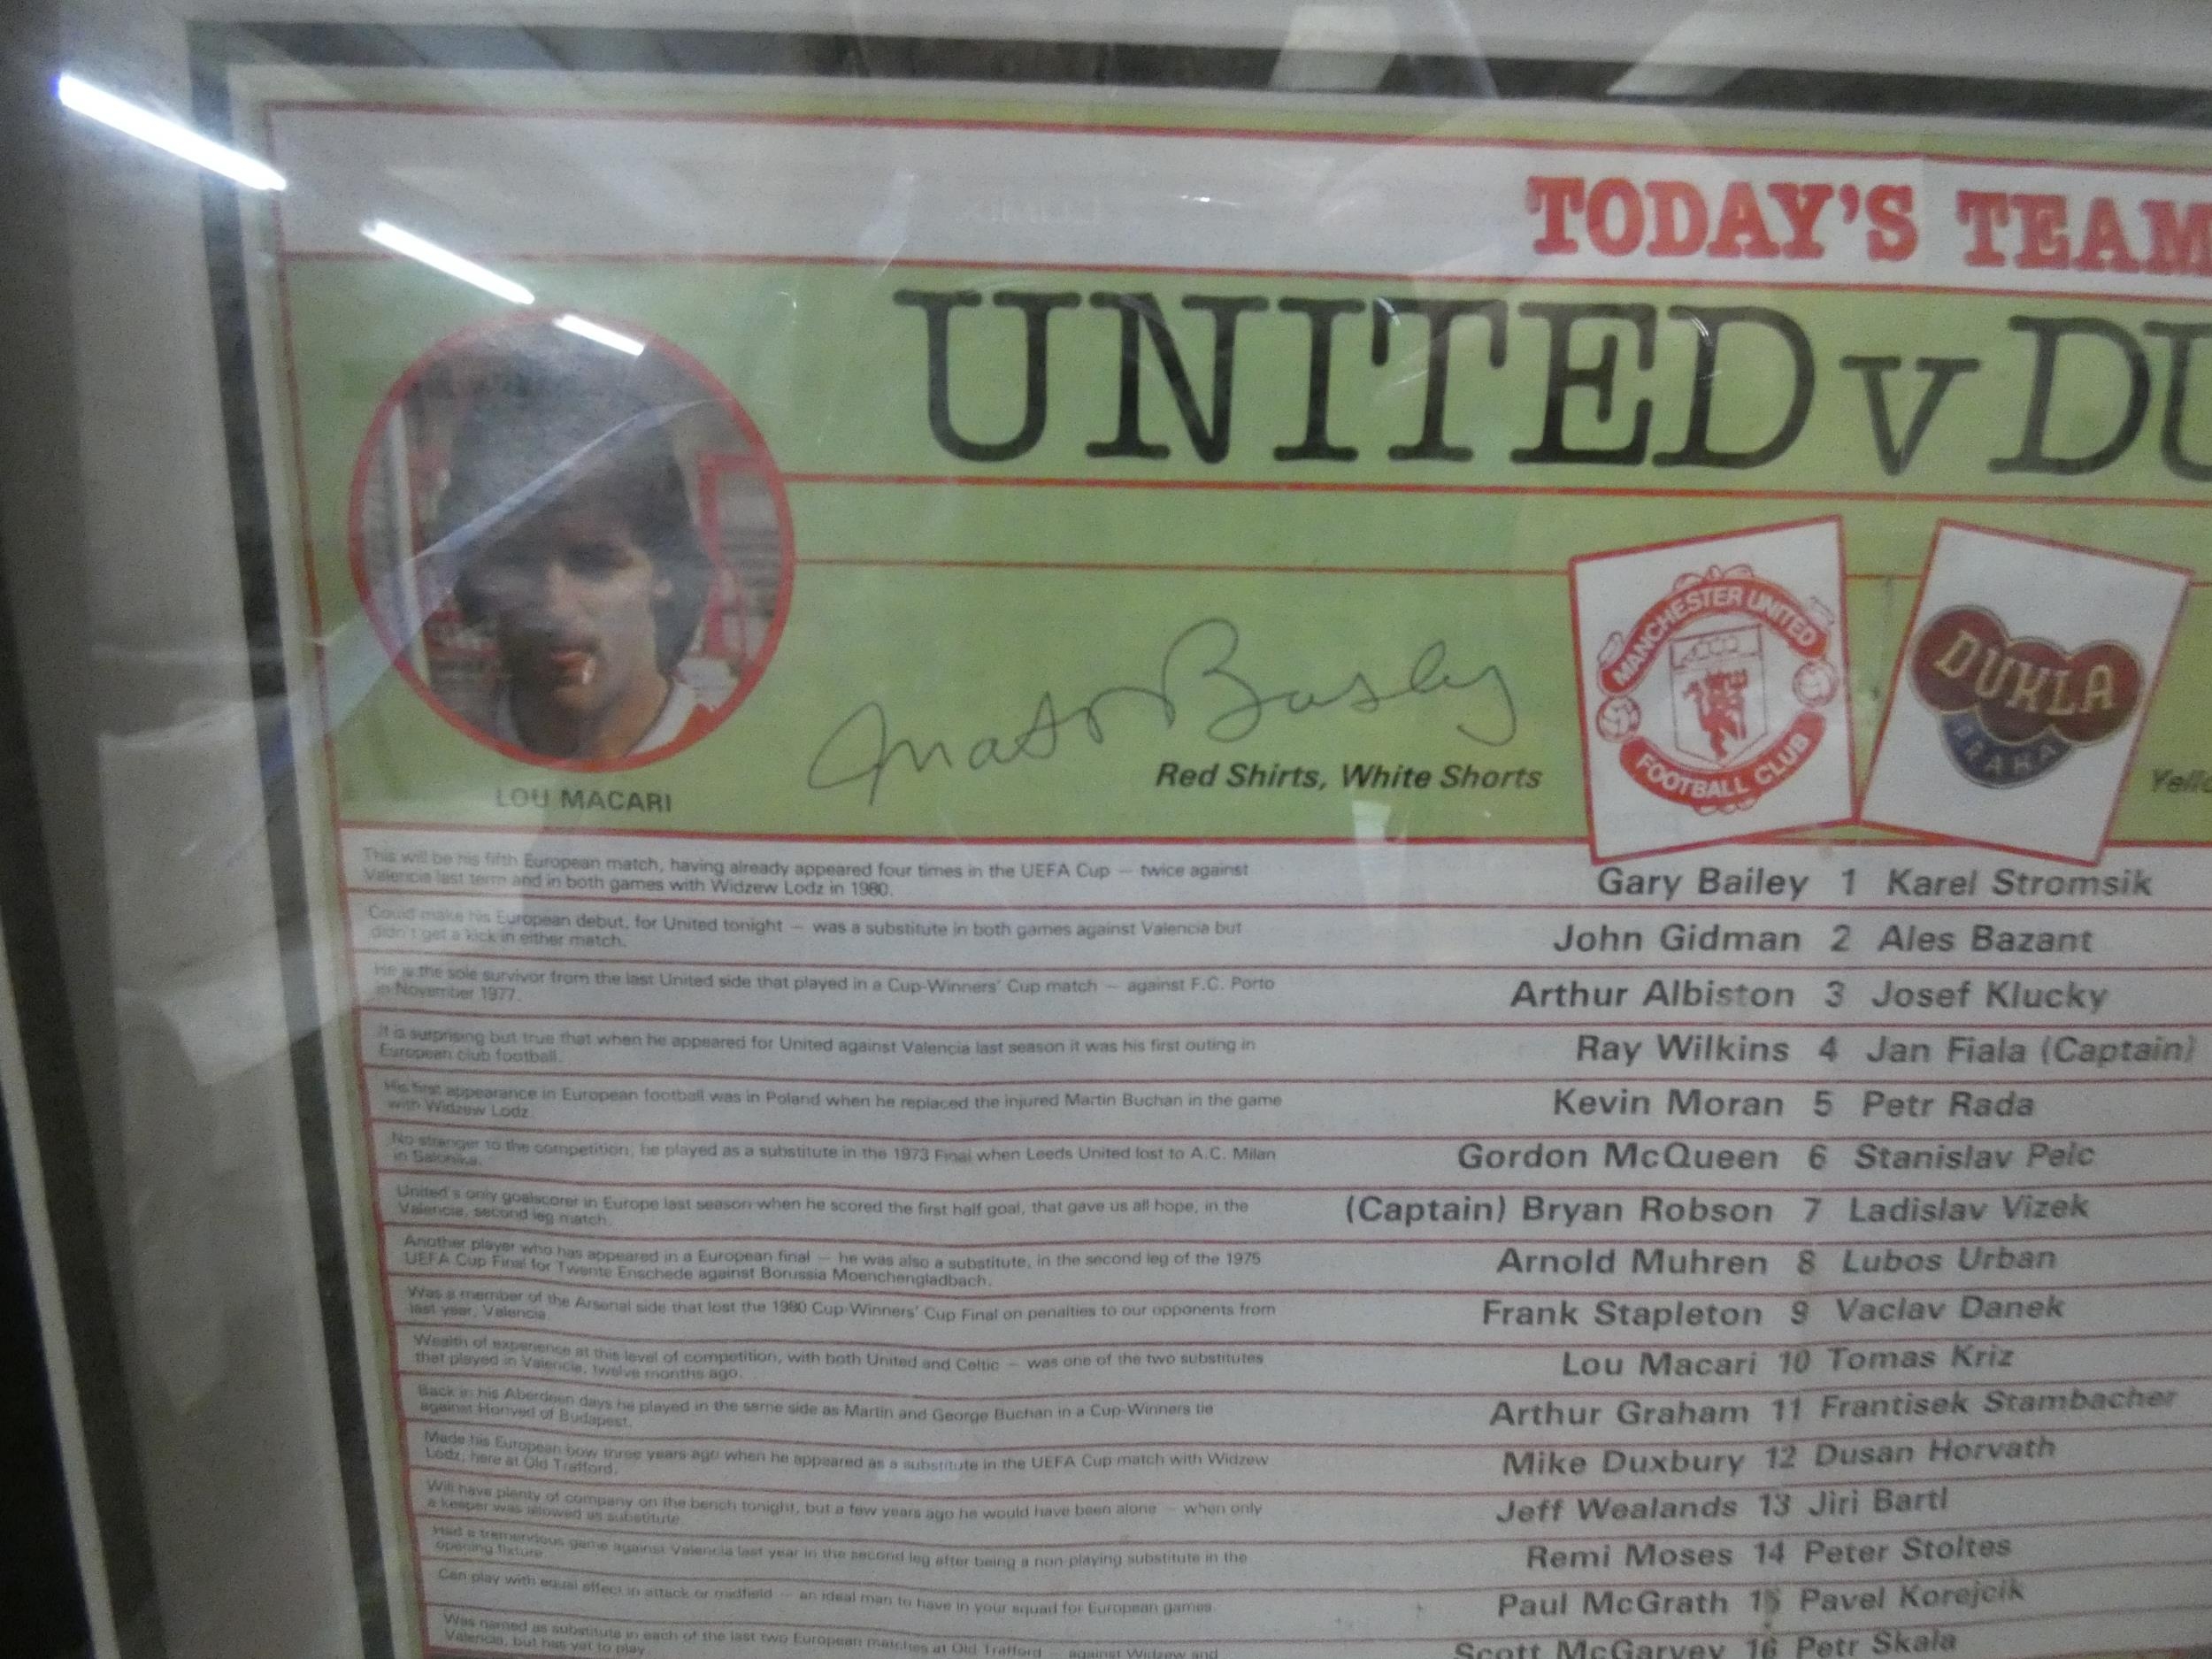 TODAY'S TEAM
UNITED v DU
Matt Busby
Red Shirts, White Shorts
MANCHESTER UNITED
FOOTBALL CLUB
DUKLA
PRAHA
LOU MACARI
This will be his fifth European match, having already appeared four times in the UEFA Cup — twice against
Valencia last term and in both games with Widzew Lodz in 1980.
Gary Bailey 1 Karel Stromsik
Could make his European debut, for United tonight — was a substitute in both games against Valencia but
didn't get a kick in either match.
John Gidman 2 Ales Bazant
He is the sole survivor from the last United side that played in a Cup-Winners' Cup match — against F.C. Porto
in November 1977.
Arthur Albiston 3 Josef Klucky
It is surprising but true that when he appeared for United against Valencia last season it was his first outing in
European club football.
Ray Wilkins 4 Jan Fiala (Captain)
His first appearance in European football was in Poland when he replaced the injured Martin Buchan in the game
with Widzew Lodz.
Kevin Moran 5 Petr Rada
No stranger to the competition, he played as a substitute in the 1973 Final when Leeds United lost to A.C. Milan
in Salonika.
Gordon McQueen 6 Stanislav Pelc
United's only goalscorer in Europe last season when he scored the first half goal, that gave us all hope, in the
Valencia, second leg match.
(Captain) Bryan Robson 7 Ladislav Vizek
Another player who has appeared in a European final — he was also a substitute, in the second leg of the 1975
UEFA Cup Final for Twente Enschede against Borussia Moenchengladbach.
Arnold Muhren 8 Lubos Urban
Was a member of the Arsenal side that lost the 1980 Cup-Winners' Cup Final on penalties to our opponents from
last year, Valencia.
Frank Stapleton 9 Vaclav Danek
Wealth of experience at this level of competition, with both United and Celtic — was one of the two substitutes
that played in Valencia, twelve months ago.
Lou Macari 10 Tomas Kriz
Back in his Aberdeen days he played in the same side as Martin and George Buchan in a Cup-Winners tie
against Honved of Budapest.
Arthur Graham 11 Frantisek Stambacher
Made his European bow three years ago when he appeared as a substitute in the UEFA Cup match with Widzew
Lodz, here at Old Trafford.
Mike Duxbury 12 Dusan Horvath
Will have plenty of company on the bench tonight, but a few years ago he would have been alone — when only
a keeper was allowed as substitute.
Jeff Wealands 13 Jiri Bartl
Had a tremendous game against Valencia last year in the second leg after being a non-playing substitute in the
opening fixture.
Remi Moses 14 Peter Stoltes
Can play with equal effect in attack or midfield — an ideal man to have in your squad for European games.
Paul McGrath 15 Pavel Korejcik
Was named as substitute in each of the last two European matches at Old Trafford — against Widzew and
Valencia, but has yet to play.
Scott McGarvey 16 Petr Skala